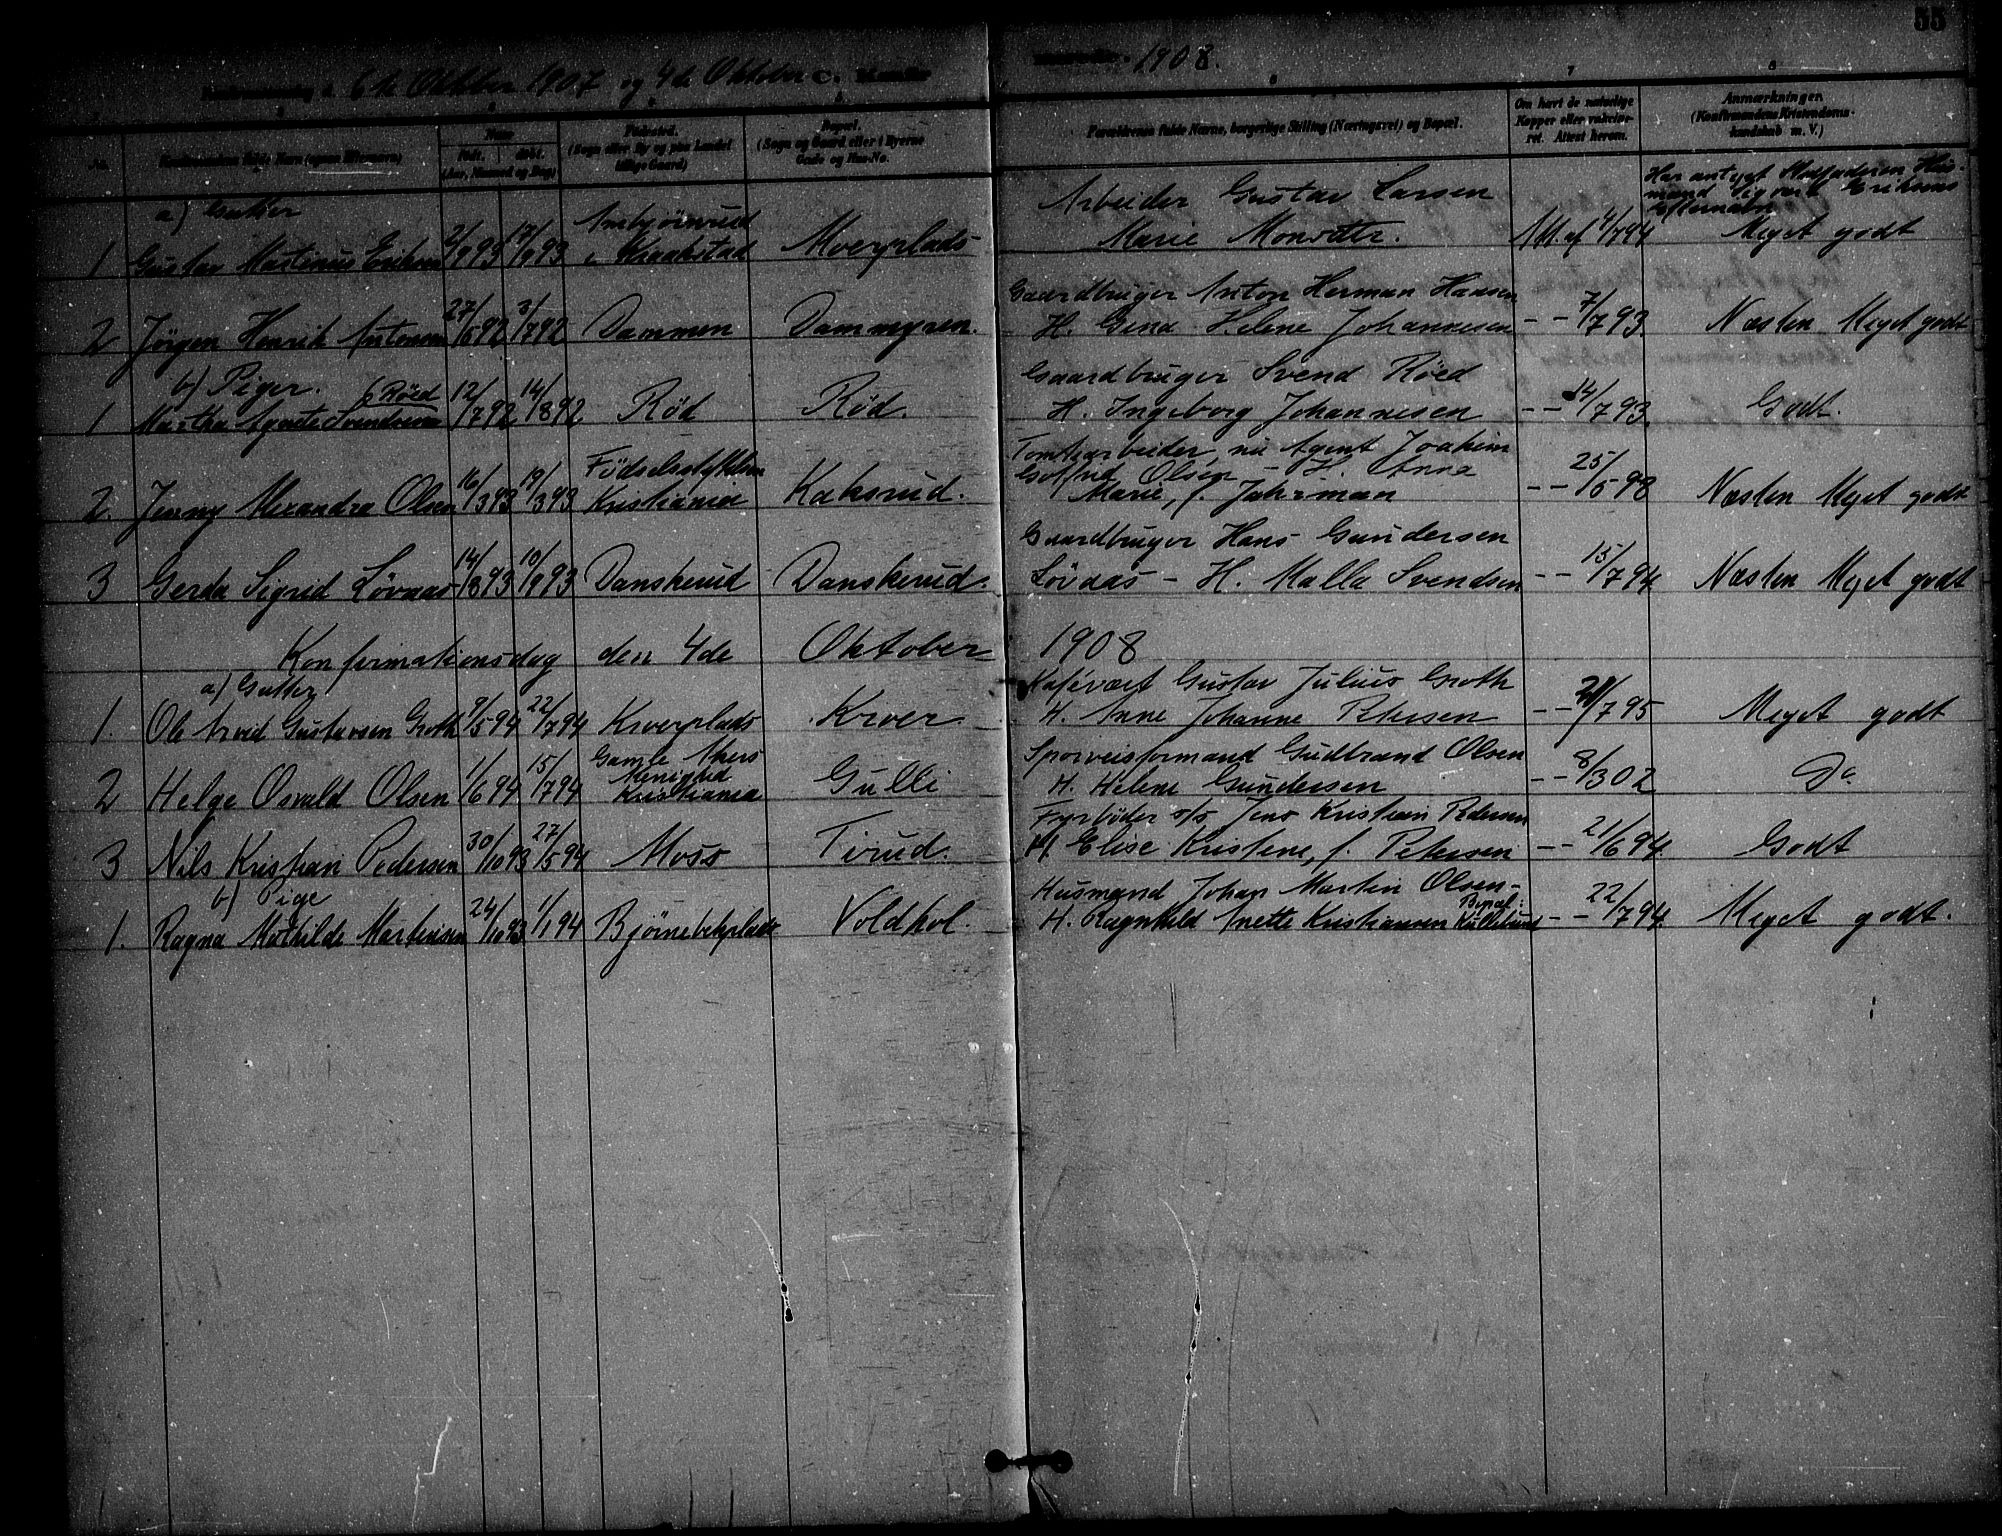 55
6te Oktober 1907 og 4de Oktober 1908.
No. Födested. Bopæl. Forældrenes fulde Navne, borgerlige Stilling (Næringsvei) og Bopæl. Om havt de naturlige Kopper eller Attest herom. Anmærkninger. (Konfirmandens Kristendomskundskab m. V.)
a) Gutter
1 Gustav Martinus Eriksen 2/9 93 17/9 93 i Kraakstad Kverplads Arbeider Gustav Larsen
Marie Att. af 4/7 94 Har antaget Stedfaderen Husmand Sigvart Eriksens Efternavn
Meget godt
2 Jörgen Henrik Antonsen 27/6 92 3/7 92 Dammen Dammyren. Gaardbruger Anton Herman Hansen
H. Gina Helene Johannesen - - 7/7 93. Næsten Meget godt
b) Piger.
1 Martha Agnete Svendsen Röed 12/7 92 14/8 92 Röd Röd Gaardbruger Svend Röed
H. Ingeborg Johannesen - - 14/7 93. Godt.
2. Jenny Alexandra Olsen 16/3 93 19/3 93 Födselsstiftelsen
Kristiania Kaksrud. Tomtearbeider, nu Agent Joakim
Gotfrid Olsen - H. Anna
Marie, f. - - 25/5 98 Næsten Meget godt
3 Gerda Sigrid Lövaas 14/8 93 10/9 93 Danskerud Danskerud. Gaardbruger Hans Gundersen
Lövaas - H. Malla Svendsen - - 15/7 94. Næsten Meget godt
Konfirmationsdag den 4de Oktober 1908
a) Gutter
1. Ole Arvid Gustavsen Groth 9/5 94 22/7 94 Kverplads Kver Kafévært Gustav Julius Groth
H. Anne Johanne Petersen - - /7 95 Meget godt
2 Helge Osvald Olsen 1/6 94 15/7 94 Gamle Akers
Menighed
Kristiania Gulli Sporveisformand Gudbrand Olsen
H. Helene Gundersen - - 8/3 02 Do
3 Nils Kristian Pedersen 30/10 93 27/5 94 Moss Tirud. Fyrböder s/s Jens Kristian Pedersen
H. Elise Kristine, f. Petersen - - 21/6 94. Godt
b) Pige
1. Ragna Mathilde Martinsen 24/10 93 1/1 94 Björnebekplads Voldhol. Husmand Johan Martin Olsen -
H. Ragnhild Anette Kristiansen Bopæl: Kullebund - - 22/7 94. Meget godt.